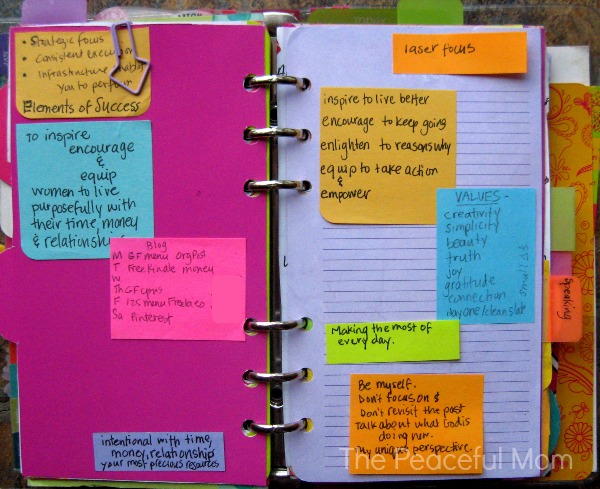 • Strategic focus
• Consistent execution
• Infrastructure
you to perform
Elements of Success
To inspire
encourage
&
equip
women to live
purposefully with
their time, money
& relationship
Blog
M GF menu OrgPost
T Free Kindle money
W
Th GF
F menu
Sa Pinterest
intentional with time,
money, relationship
your most precious resources
laser focus
inspire to live better
encourage to keep going
enlighten to reasons why
equip to take action
&
empower
VALUES -
creativity
simplicity
beauty
truth
joy
gratitude
connection
day one/clean slate
Speaking
Making the most of
every day.
Be myself.
Don't focus on $
Don't revisit the past
Talk about what God is
doing now.
My unique perspective.
The Peaceful Mom